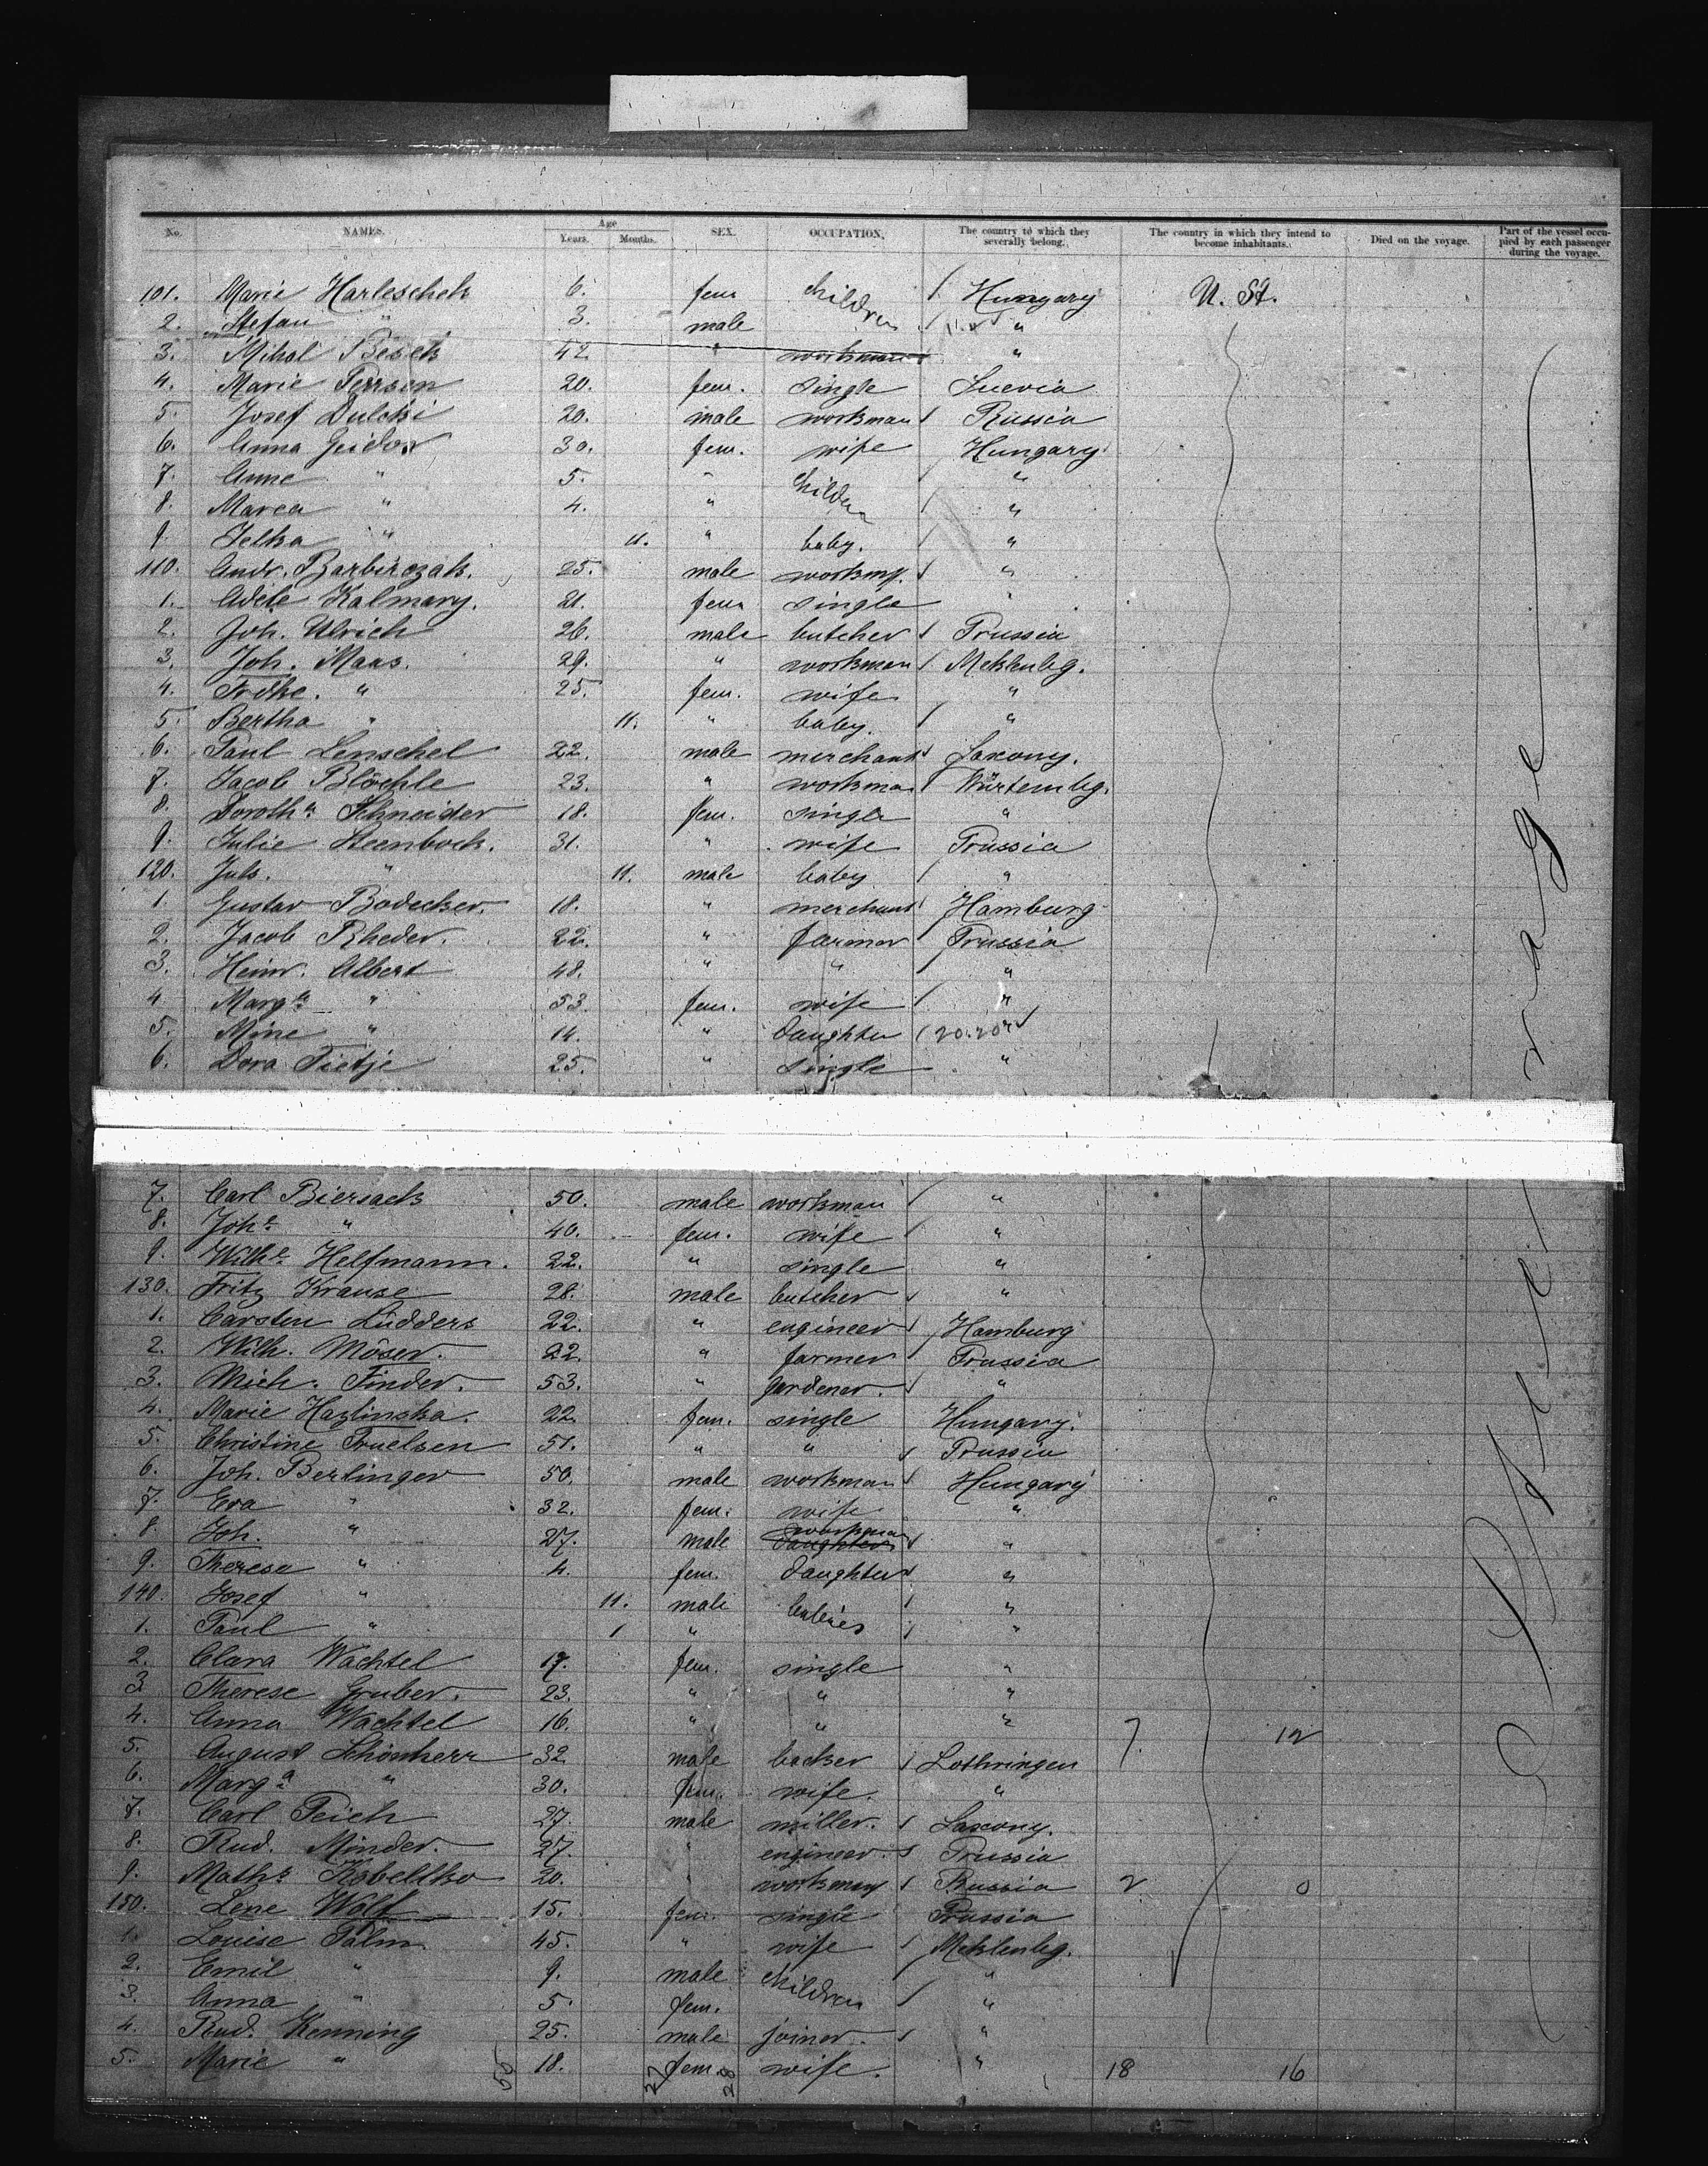 No. NAMES. Age Years. Months. SEX. OCCUPATION. The country to which they severally belong. The country in which they intend to become inhabitants. Died on the voyage. Part of the vessel occupied by each passenger during the voyage.
101. Marie Harleschek 6. fem children Hungary U. St.
2. Stefan " 3. male "
3. Mihal Besek 42. " workman "
4. Marie Perrson 20. fem. single Suevia
5. Josef Dulcki 20. male workman Russia
6. Anna Geidos 30. fem. wife Hungary
7. Anne " 5. " children "
8. Marca " 4. " "
9. Jelka " 11. " baby. "
110. Andr. Barbirczak. 25. male workmn. "
1. Adele Kalmary. 21. fem single "
2. Joh. Ulrich 26. male butcher Prussia
3. Joh. Maas. 29. " workman Meklenbg.
4. Fridke. " 25. fem. wife "
5. Bertha " 11. " baby. "
6. Paul Lenschel 22. male merchant Saxony.
7. Jacob Blöchle 23. " workman Würtembg.
8. Doroth.a Schneider 18. fem. single "
9. Julie Steenbock. 31. " wife Prussia
120. Juls. " 11. male baby "
1. Gustav Bodecker. 18. " merchant Hamburg
2. Jacob Rheder. 22. " farmer Prussia
3. Heinr. Albert 48. " " "
4 Marg.a " 53. fem. wife "
5. Mine " 14. " daughter 20.20
6. Dora Tietje 25. " single "
7. Carl Biersack 50. male workman "
8. Joh.e " 40. fem. wife "
9. Wilh.e Helfmann. 22. " single "
130. Fritz Krause 28. male butcher "
1. Carsten Lüdders 22. " engineer Hamburg
2. Wilh. Möser. 22. " farmer Prussia
3. Mich. Finder. 53. " gardener. "
4. Marie Hazlinska. 22. fem. single Hungary.
5. Christine Truelsen 51. " " Prussia
6. Joh. Berlinger 50. male workman Hungary
7. Eva " 32. fem. wife "
8. Joh. " 27. male daughter workman "
9. Therese " 4. fem. daughter "
140. Josef " 11. male babies "
1. Paul " 1 " "
2. Clara Wachtel 17. fem. single "
3 Therese Gruber. 23. " " "
4. Anna Wachtel 16. " " " 7. 12
5. August Schönherr 32 male backer Lothringen
6. Marg.a " 30. fem. wife. "
7. Carl Teich 27. male miller. Saxony.
8. Rud. Minder. 27. " engineer. Prussia
9. Math.s Kobellko 20. " workman Russia 2 0
150. Lene Wolf 15. fem. single Prussia
1. Louise Palm 45. " wife Meklenbg.
2. Emil " 9. male children "
3. Anna " 5. fem. "
4. Rud. Henning 25. male joiner. "
5. Marie " 18. fem. wife. " 18 16
55 27 28
Steerage